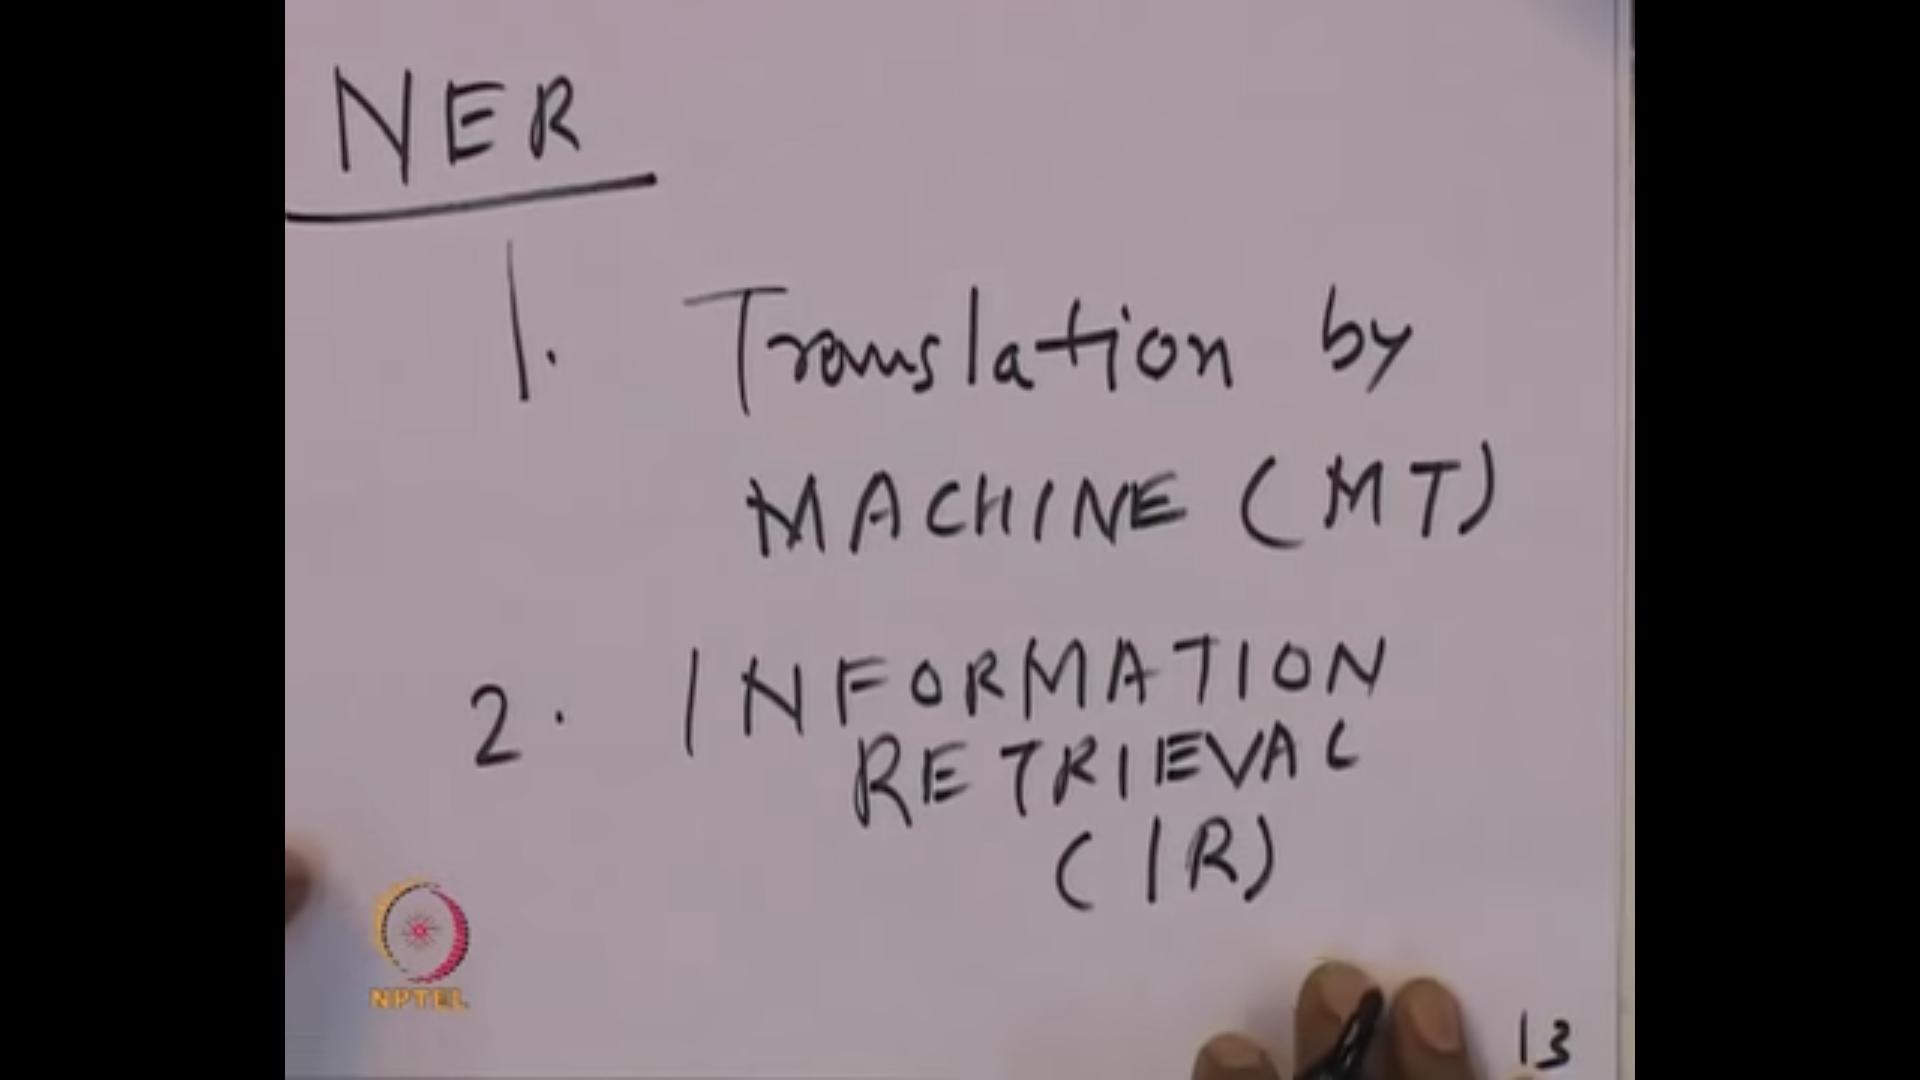 NER
1. Translation by
MACHINE (MT)
2. INFORMATION
RETRIEVAL
(IR)
NPTEL
13